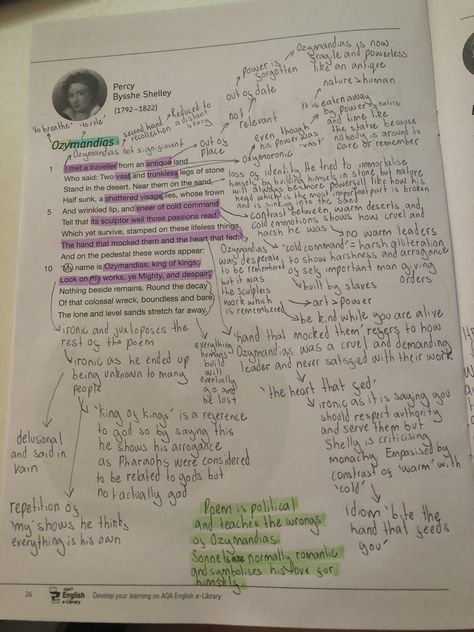 Percy
Bysshe Shelley
(1792–1822)
'to breathe' 'to rule'
Ozymandias
second hand recollection
Reduced to a distant story
Ozymandias not significant
out of place
not relevant
out of date
power is forgotten
Ozymandias is now fragile and powerless like an antique
nature > human
It is eaten away by power of nature and time like the statue because nobody is around to care or remember
even though his power was 'vast'
oxymoronic
1 I met a traveller from an antique land
Who said: Two vast and trunkless legs of stone
Stand in the desert. Near them on the sand
Half sunk, a shattered visage lies, whose frown
5 And wrinkled lip, and sneer of cold command
Tell that its sculptor well those passions read
Which yet survive, stamped on these lifeless things,
The hand that mocked them and the heart that fed:
And on the pedestal these words appear:
10 'My name is Ozymandias, king of kings;
Look on my works, ye Mighty, and despair!'
Nothing beside remains. Round the decay
Of that colossal wreck, boundless and bare
The lone and level sands stretch far away.
loss of identity. He tried to immortalise
himself by building himself in stone but nature
will always be more powerful like how his
head which is the most important part is broken
and is sinking into the sand
contrast between warm deserts and
cold emmotions shows how cruel and
harsh he was
no warm leaders
'cold command' = harsh alliteration
to show harshness and arrogance
of self important man giving
orders
Ozymandias
was desperate
to be remembered
but it was
the sculptors
work which
is remembered
built by slaves
art > power
be kind while you are alive
'hand that mocked them' refers to how
Ozymandias was a cruel and demanding
leader and never satisfied with their work
'the heart that fed'
ironic as it is saying you
should respect authority
and serve them but
Shelly is criticising
monachy. Empasised by
contrast of 'warm' with
'cold'
idiom 'bite the
hand that feeds
you'
everything
humans
build
will
eventually
go and
be lost
ironic and juxtoposes the
rest of the poem
ironic as he ended up
being unknown to many
people
delusional
and said in
vain
'King of kings' is a reference
to god so by saying this
he shows his arrogance
as Pharaohs were considered
to be related to gods but
not actually god
repetition of
'my' shows he thinks
everything is his own
Poem is political
and teaches the wrongs
of Ozymandias
Sonnets are normally romantic
and symbolises his love for
himself
26 AQA English e-Library Develop your learning on AQA English e-Library